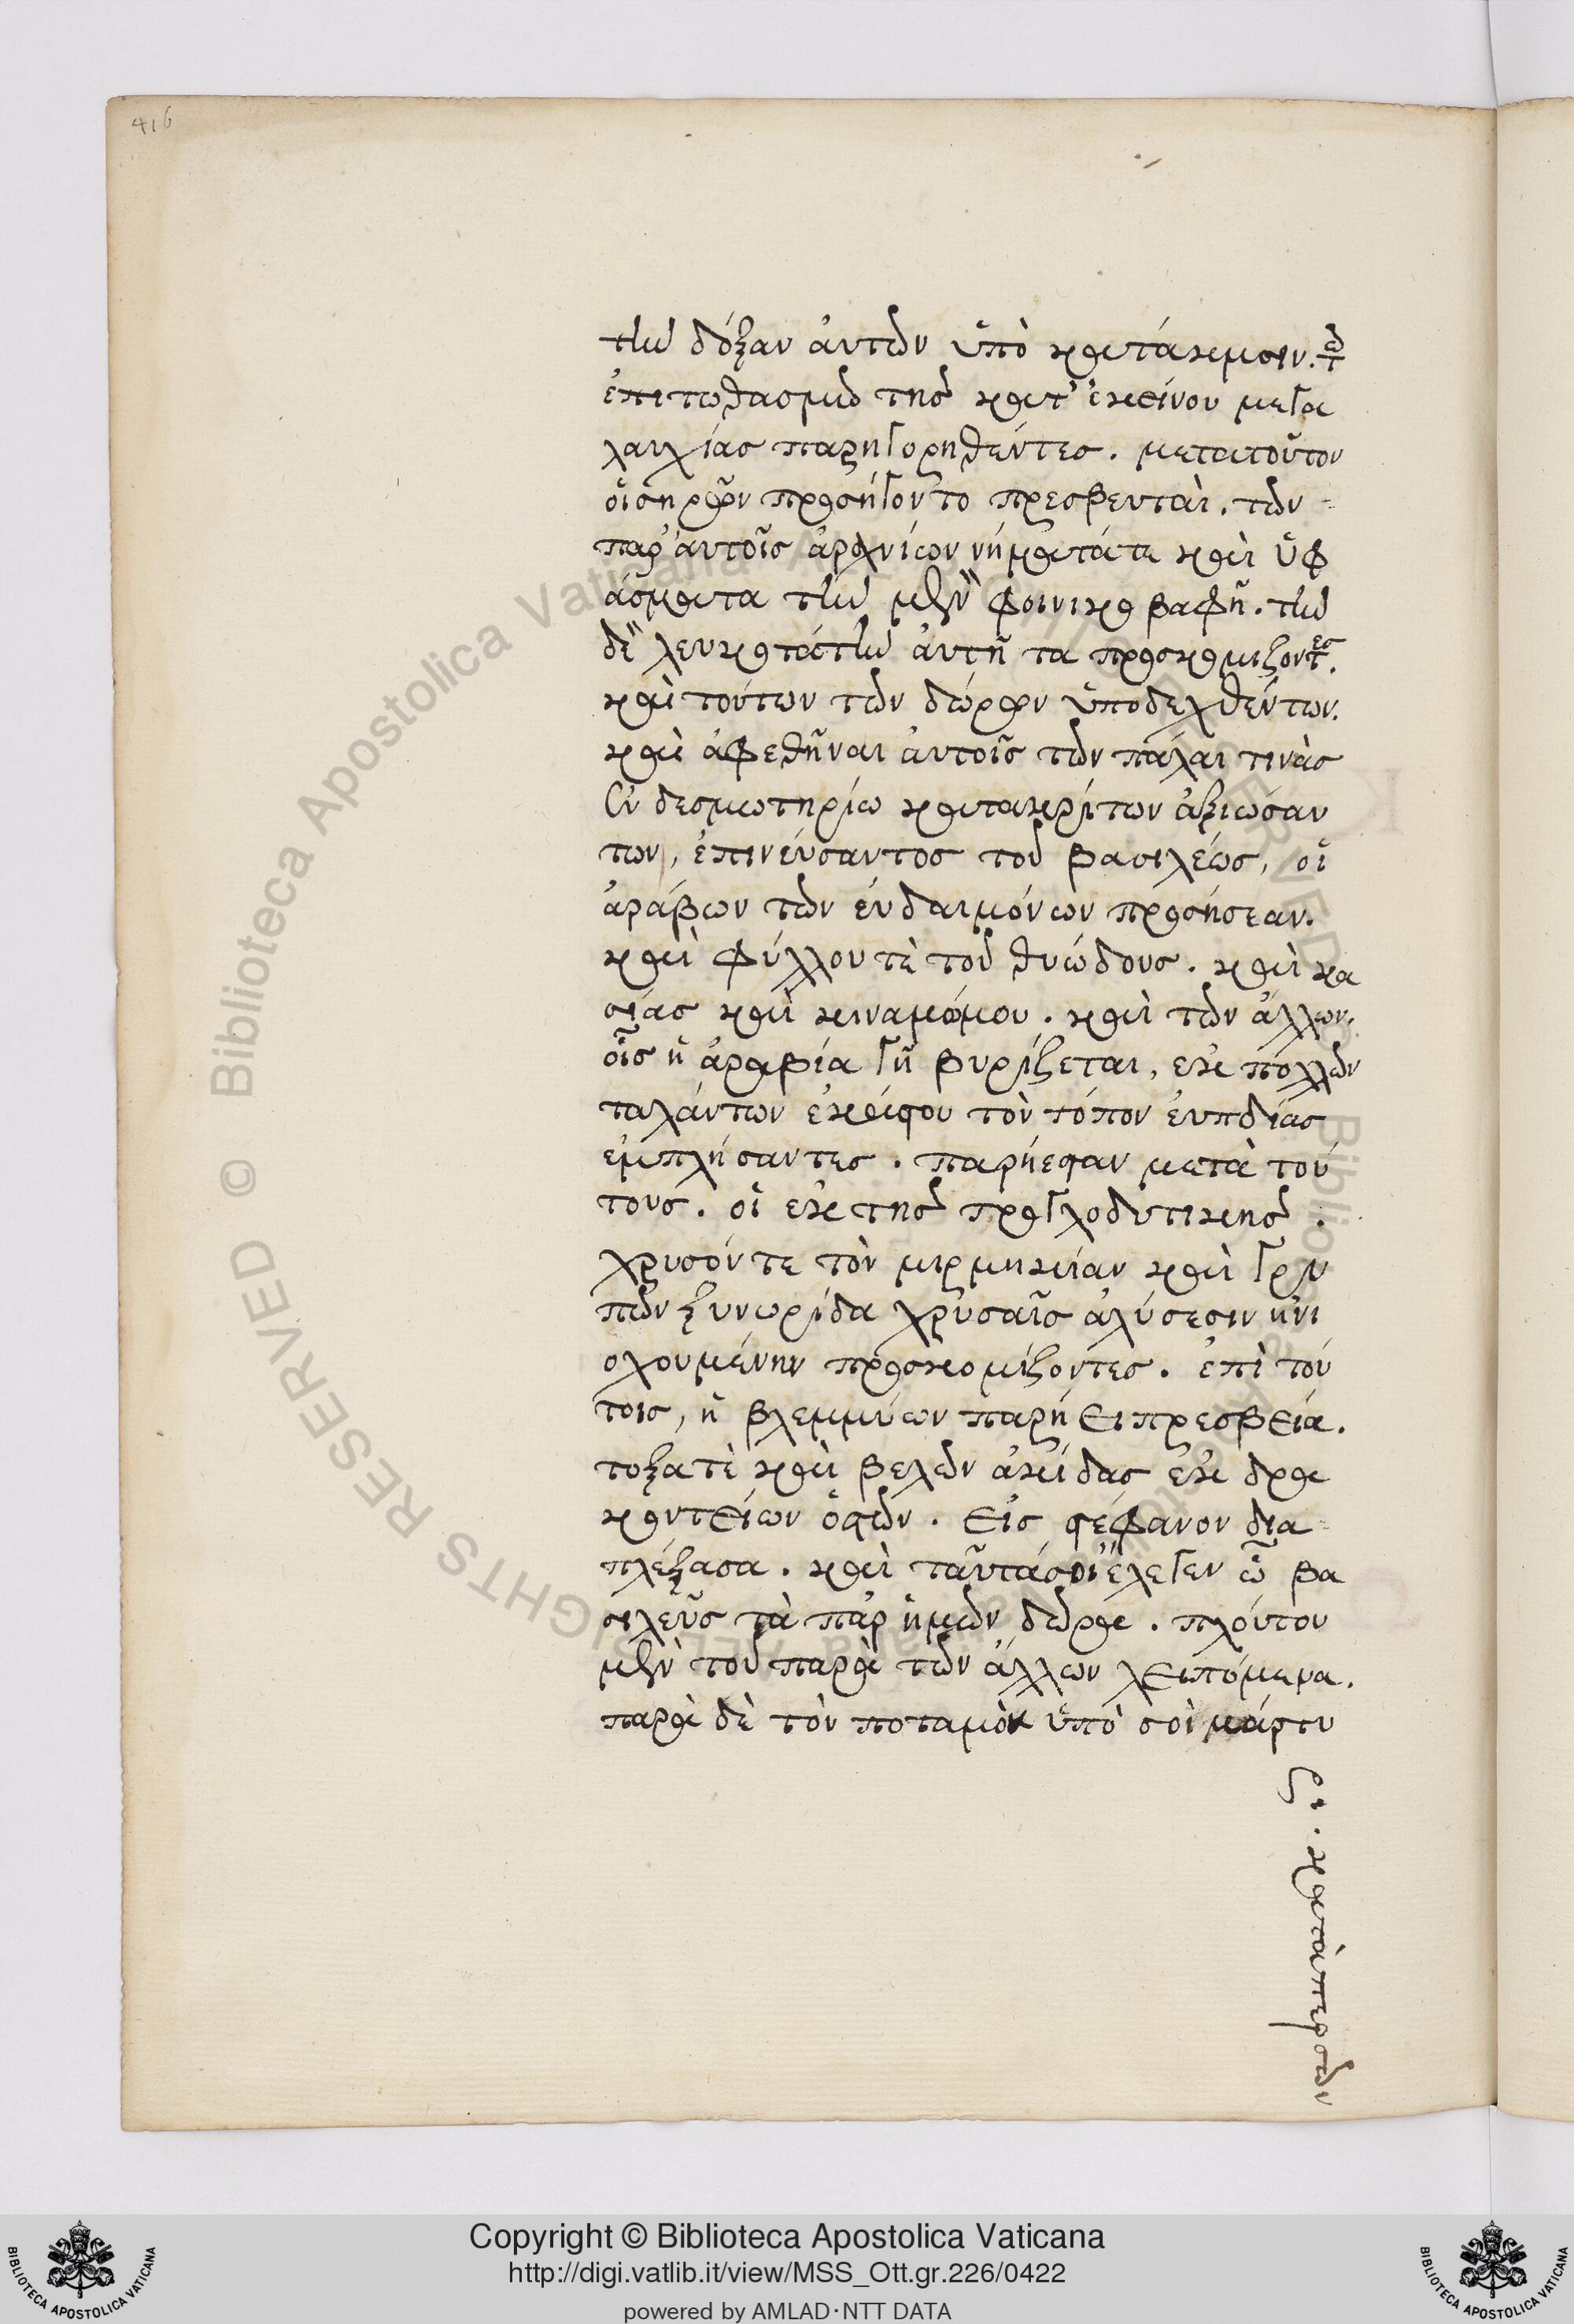 416
τὴν δόξαν ἀυτῶν ὑπὸ κατάκμσιν. τῶ
ἐπιτωθασμῶ τῆς κατ' ἐκείνου μεγα
λαυχίας παρηγορηθέντες. μετατοῦτον
οἱ σηρῶν προσήγοντο πρεσβευταὶ. τῶν
παρ' ἀυτοῖς ἀραχνίων νήματά τε καὶ ὑφ
άσματα τὴν μὲν φοινικοβαφῆ. τὴν
δὲ λευκοτάτην ἀυτῆ τα προσκομιζοντες.
καὶ τούτων τῶν δώρων ὑποδεχθέντων.
καὶ ἀφεθῆναι ἀυτοῖς τῶν πάλαι τινὰς
ἐν δεσμωτηρίω κατακρίτων ἀξιωσάν
των, ἐπινέυσαντος τοῦ βασιλέως, οἱ
ἀράβων τῶν ἐυδαιμόνων προσήεσαν.
καὶ φύλλου τὲ τοῦ θυώδους. καὶ κα
σίας καὶ κιναμώμου. καὶ τῶν ἄλλων.
οἷς ἡ ἀραβία γῆ βυρίζεται, ἐκ πολλῶν
ταλάντων ἑκάστου τὸν τόπον ἐυωδίας
ἐμπλήσαντες. παρήεσαν μετὰ τού
τους. οἱ ἐκ τῆς τρωγλοδυτικῆς.
χρυσόν τε τὸν μιρμηκίαν καὶ γρυ
πῶν ξυνωρίδα χρυσαῖς ἁλύσεσιν ἡνι
οχουμένην προσκομίζοντες. ἐπὶ τού
τοις, ἡ βλεμμύων παρήει πρεσβεία.
τοξα τὲ καὶ βελῶν ἀκίδας ἐκ δρα
κοντείων ὀστῶν. εἰς στέφανον δια
πλέξασα. καὶ ταῦτά σοι ἔλεγεν ὦ βα
σιλεῦς τὰ παρ' ἡμῶν δῶρα. πλούτου
μὲν τοῦ παρὰ τῶν ἄλλων λειπόμενα.
παρὰ δὲ τὸν ποταμὸν ὑπὸ σοὶ μάρτυ
ρι. κατὰ περσῶν
Copyright © Biblioteca Apostolica Vaticana
http://digi.vatlib.it/view/MSS_Ott.gr.226/0422
powered by AMLAD·NTT DATA
BIBLIOTECA APOSTOLICA VATICANA
BIBLIOTECA APOSTOLICA VATICANA